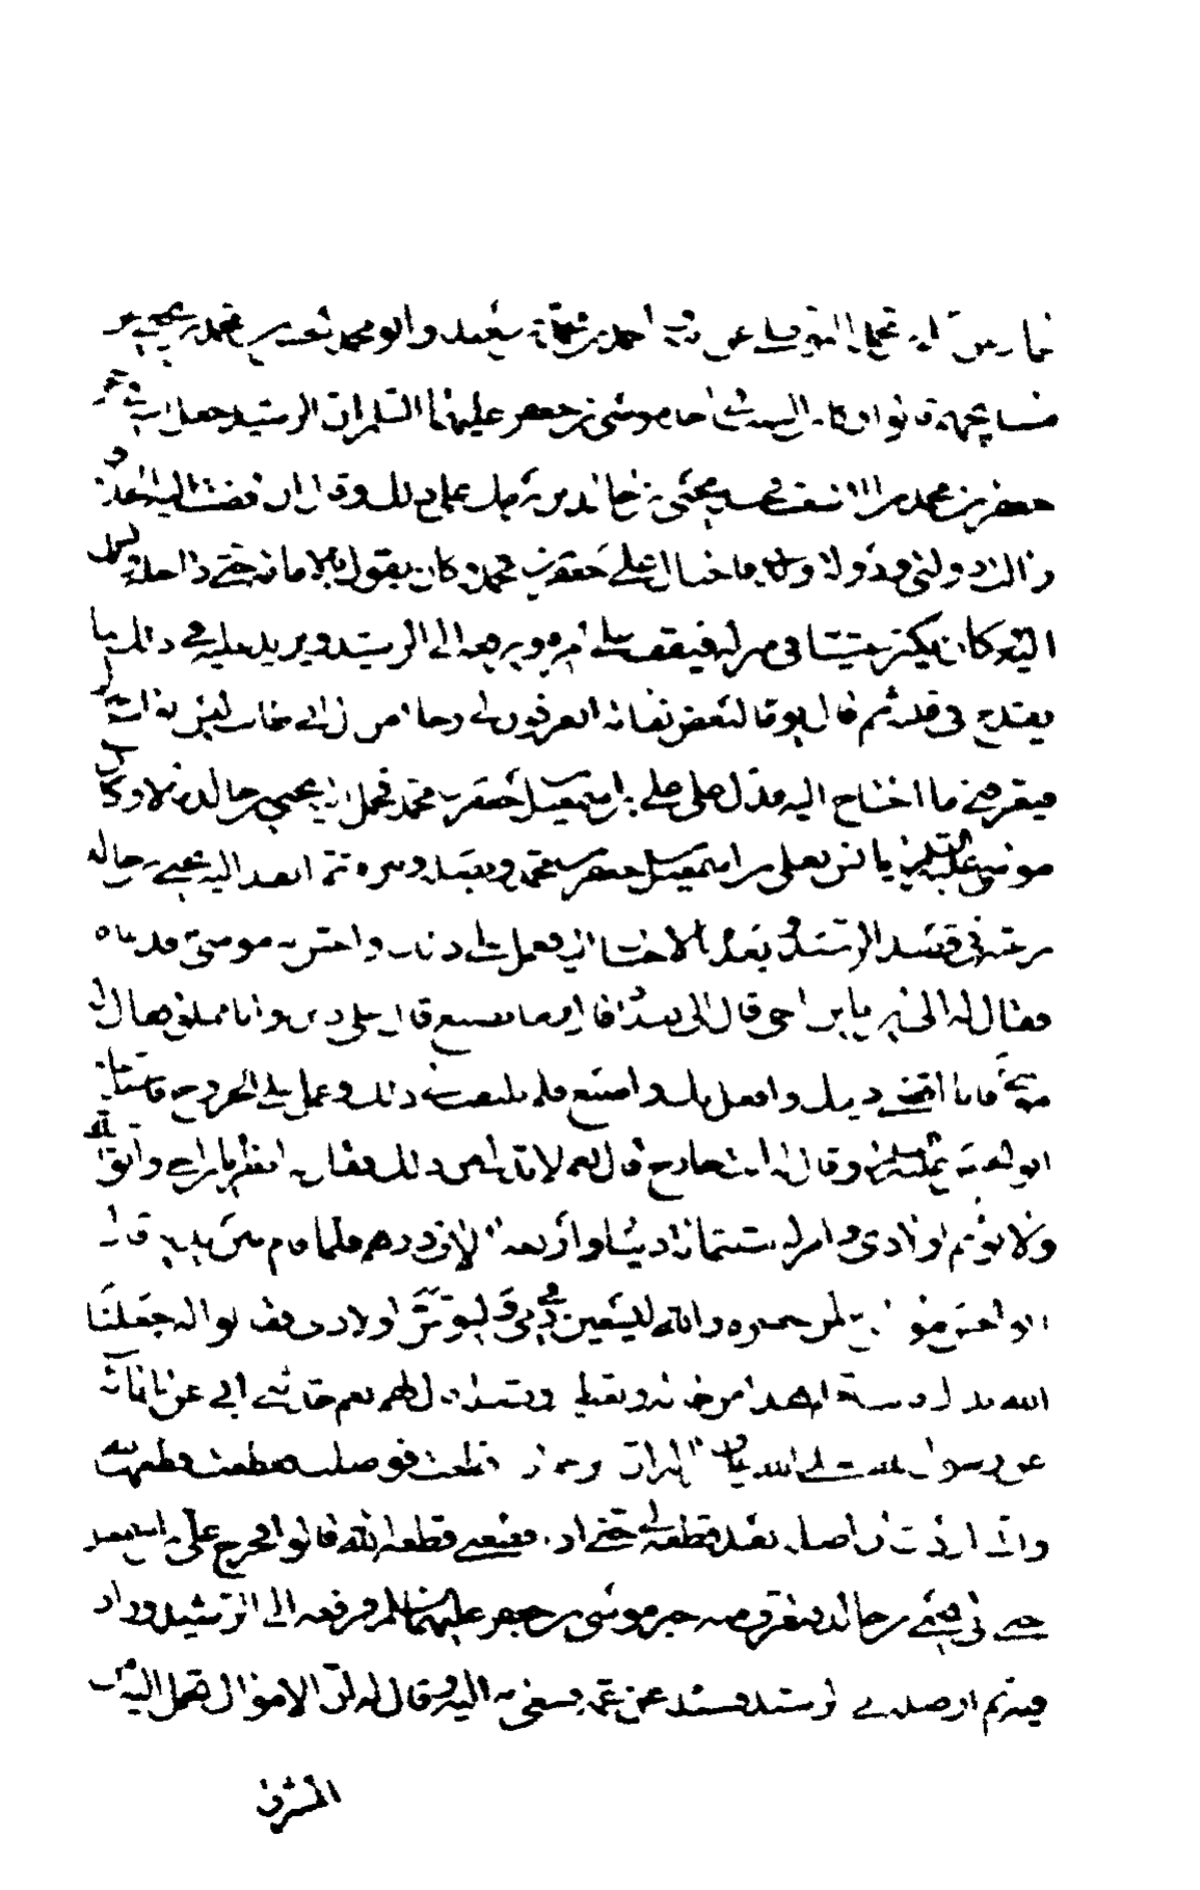 عمار عن علي بن محمد النوفلي عن احمد بن محمد بن سعيد وابو محمد الحسن بن محمد بن يحيى عن
مشايخهم قالوا وكان السبب في اخذ موسى بن جعفر عليهما السلم ان الرشيد جعل ابنه في حجر
جعفر بن محمد بن الاشعث فحسده يحيى بن خالد بن برمك على ذلك وقال ان افضت اليه الخلافة
زالت دولتي ودولة ولدي فاحتال على جعفر بن محمد وكان يقول بالامامة حتى داخله وانس
اليه وكان يكثر غشيانه في منزله فيقف على امره ويرفعه الى الرشيد ويزيد عليه في ذلك بما
يقدح في قلبه ثم قال يوما لبعض ثقاته اتعرفون لي رجلا من آل ابي طالب ليس بواسع
فيعرفني ما احتاج اليه فدل على علي بن اسمعيل بن جعفر بن محمد فحمل اليه يحيى بن خالد مالا وكان
موسى عليه السلم يانس بعلي بن اسمعيل بن جعفر بن محمد ويصله ويبره ثم انفذ اليه يحيى بن خالد
يرغبه في قصد الرشيد ويعده بالاحسان اليه فعمل على ذلك واحس به موسى فدعاه
فقال له الى اين يا بن اخي قال الى بغداد قال وما تصنع قال علي دين وانا مملق فقال له
موسى فانا اقضي دينك وافعل بك واصنع فلم يلتفت الى ذلك وعمل على الخروج فاستدعاه
ابو الحسن عليه السلم وقال له انت خارج قال نعم لا بد لي من ذلك فقال له انظر يا بن اخي واتق الله
ولا توتم اولادي وامر له بثلثمائة دينار واربعة الاف درهم فلما قام من بين يديه قال
ابو الحسن موسى لمن حضره والله ليسعين في دمي وليوتمن اولادي فقالوا له جعلنا
الله فداك وانت تعلم هذا من حاله وتعطيه وتصله قال لهم نعم حدثني ابي عن آبائه
عن رسول الله صلى الله عليه وآله ان الرحم اذا قطعت فوصلت فقطعت قطعها الله
واني اردت ان اصله بعد قطعه لي حتى اذا قطعني قطعه الله قالوا فخرج علي بن اسمعيل
حتى اتى يحيى بن خالد فتعرف منه خبر موسى بن جعفر عليهما السلم فرفعه الى الرشيد وزاد
فيه ثم اوصله الى الرشيد فسئله عن عمه فسعى به اليه وقال له ان الاموال تحمل اليه من
المشرق